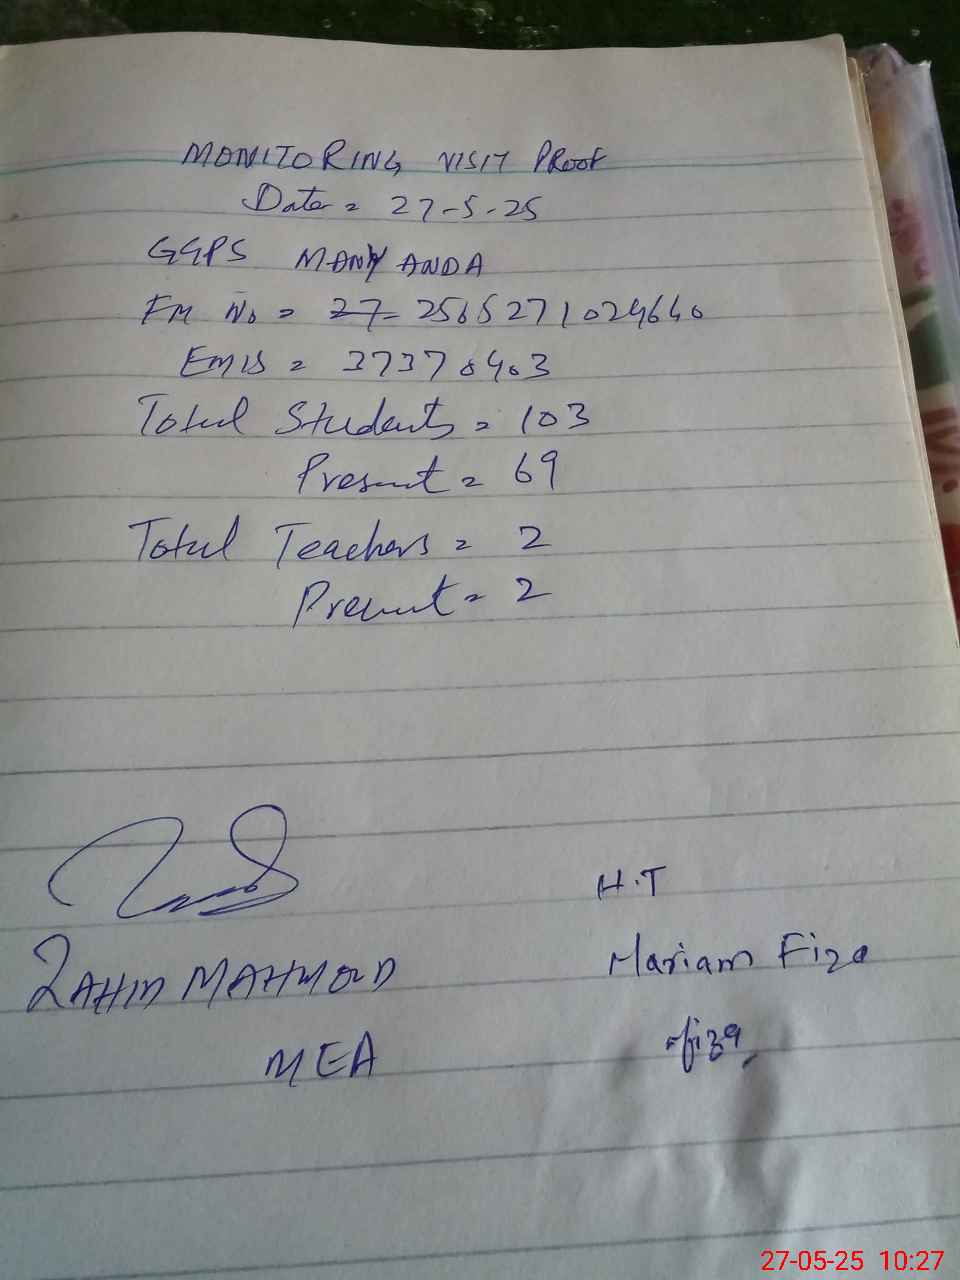 MONITORING VISIT PROOF
Date = 27-5-25
GGPS MANYANDA
FM No = 27-2505271024640
EMIS = 37370403
Total Students = 103
Present = 69
Total Teachers = 2
Present = 2
H.T
ZAHID MAHMOOD
Mariam Fiza
MEA
fiza
27-05-25 10:27